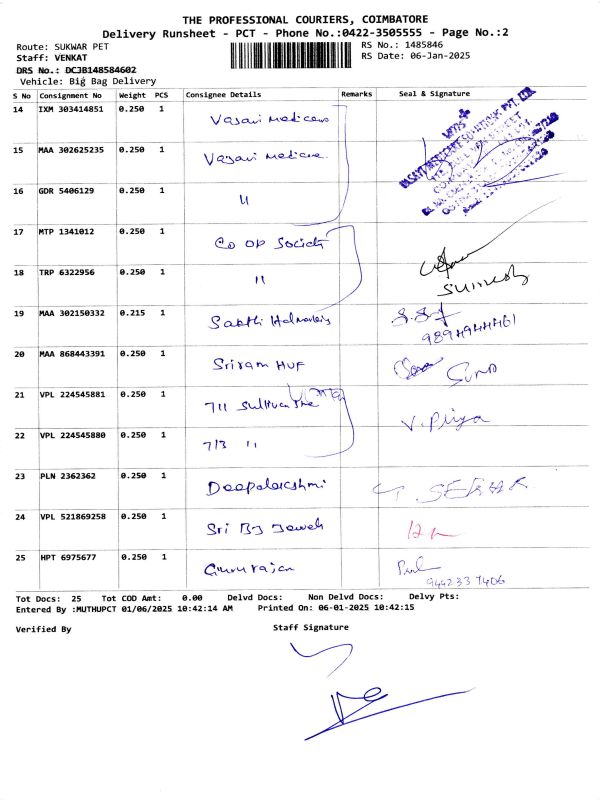 THE PROFESSIONAL COURIERS, COIMBATORE
Delivery Runsheet - PCT - Phone No.:0422-3505555 - Page No.:2
Route: SUKWAR PET RS No.: 1485846
Staff: VENKAT RS Date: 06-Jan-2025
DRS No.: DCJB148584602
Vehicle: Big Bag Delivery
S No Consignment No Weight PCS Consignee Details Remarks Seal & Signature
14 IXM 303414851 0.250 1 Vasavi
15 MAA 302625235 0.250 1 Vasavi
16 GDR 5406129 0.250 1 "
17 MTP 1341012 0.250 1 Co op Society
18 TRP 6322956 0.250 1 "
19 MAA 302150332 0.215 1 Sakthi
20 MAA 868443391 0.250 1 Sriram HUF
21 VPL 224545881 0.250 1 711
22 VPL 224545880 0.250 1 713 " V. Priya
23 PLN 2362362 0.250 1 Deepalakshmi
24 VPL 521869258 0.250 1 Sri
25 HPT 6975677 0.250 1 Gururajan
9442337406
Tot Docs: 25 Tot COD Amt: 0.00 Delvd Docs: Non Delvd Docs: Delvy Pts:
Entered By :MUTHUPCT 01/06/2025 10:42:14 AM Printed On: 06-01-2025 10:42:15
Verified By Staff Signature